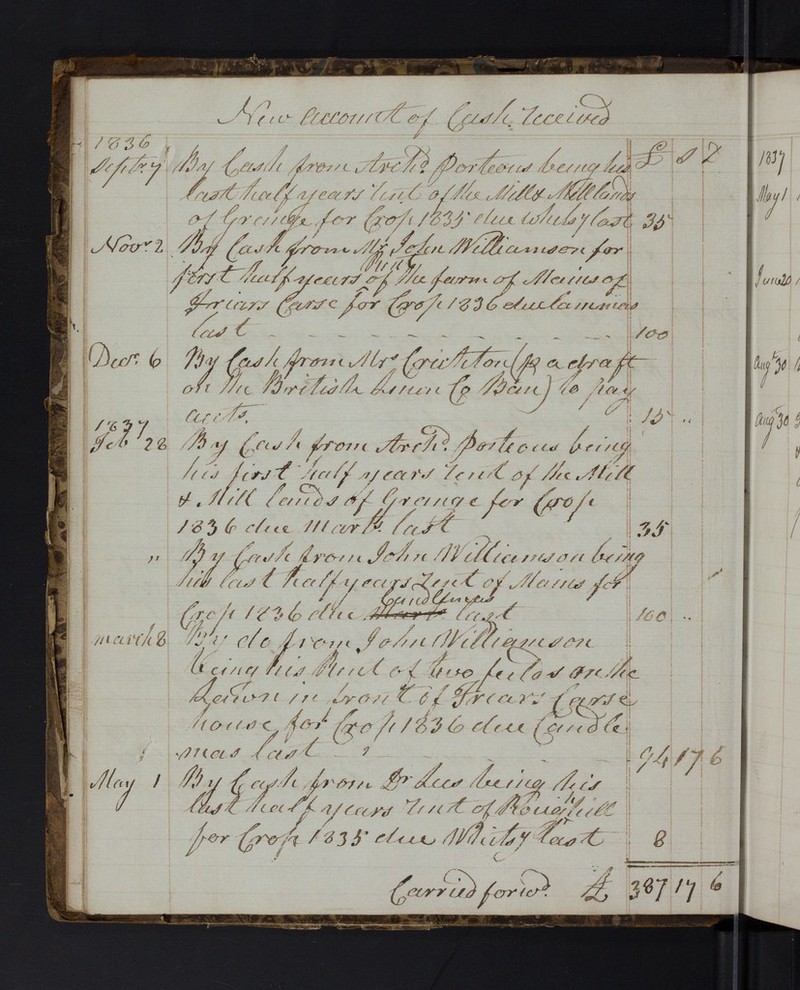 New Account of Cash Received
1836 £ S D
Septr 7 By Cash from Archd. Porteous being his
last half years rent of the Mill & Mill lands
of Grainge for Crop 1835 due Whitsy last 35
Novr 2 By Cash from Mr John Williamson for
first half years rent of the farm of Mains of
Friars Carse for Crop 1836 due lammas
last 100
Decr. 6 By Cash from Mrs Crichton (p a draft
on the British Linen Co Ban) to pay
accts. 15 "
1837
Feb 28 By Cash from Archd. Porteous being
his first half years rent of the Mill
& Mill lands of Grainge for Crop
1836 due Marts last 35
" By Cash from John Williamson being
his last half years Rent of Mains for
Crop 1836 due Candlemas last 100 "
march 8 By do from John Williamson
being his Rent of two feilds on the
Lawn in front of Friars Carse
house for Crop 1836 due Candle
mas last 94 17 6
May 1 By Cash from Dr Lees being his
last half years rent of Roughhill
for Crop 1835 due Whitsy last 8
Carried forwd. £ 387 17 6
1837
May 1
June 20
Augt 30
Augt 30